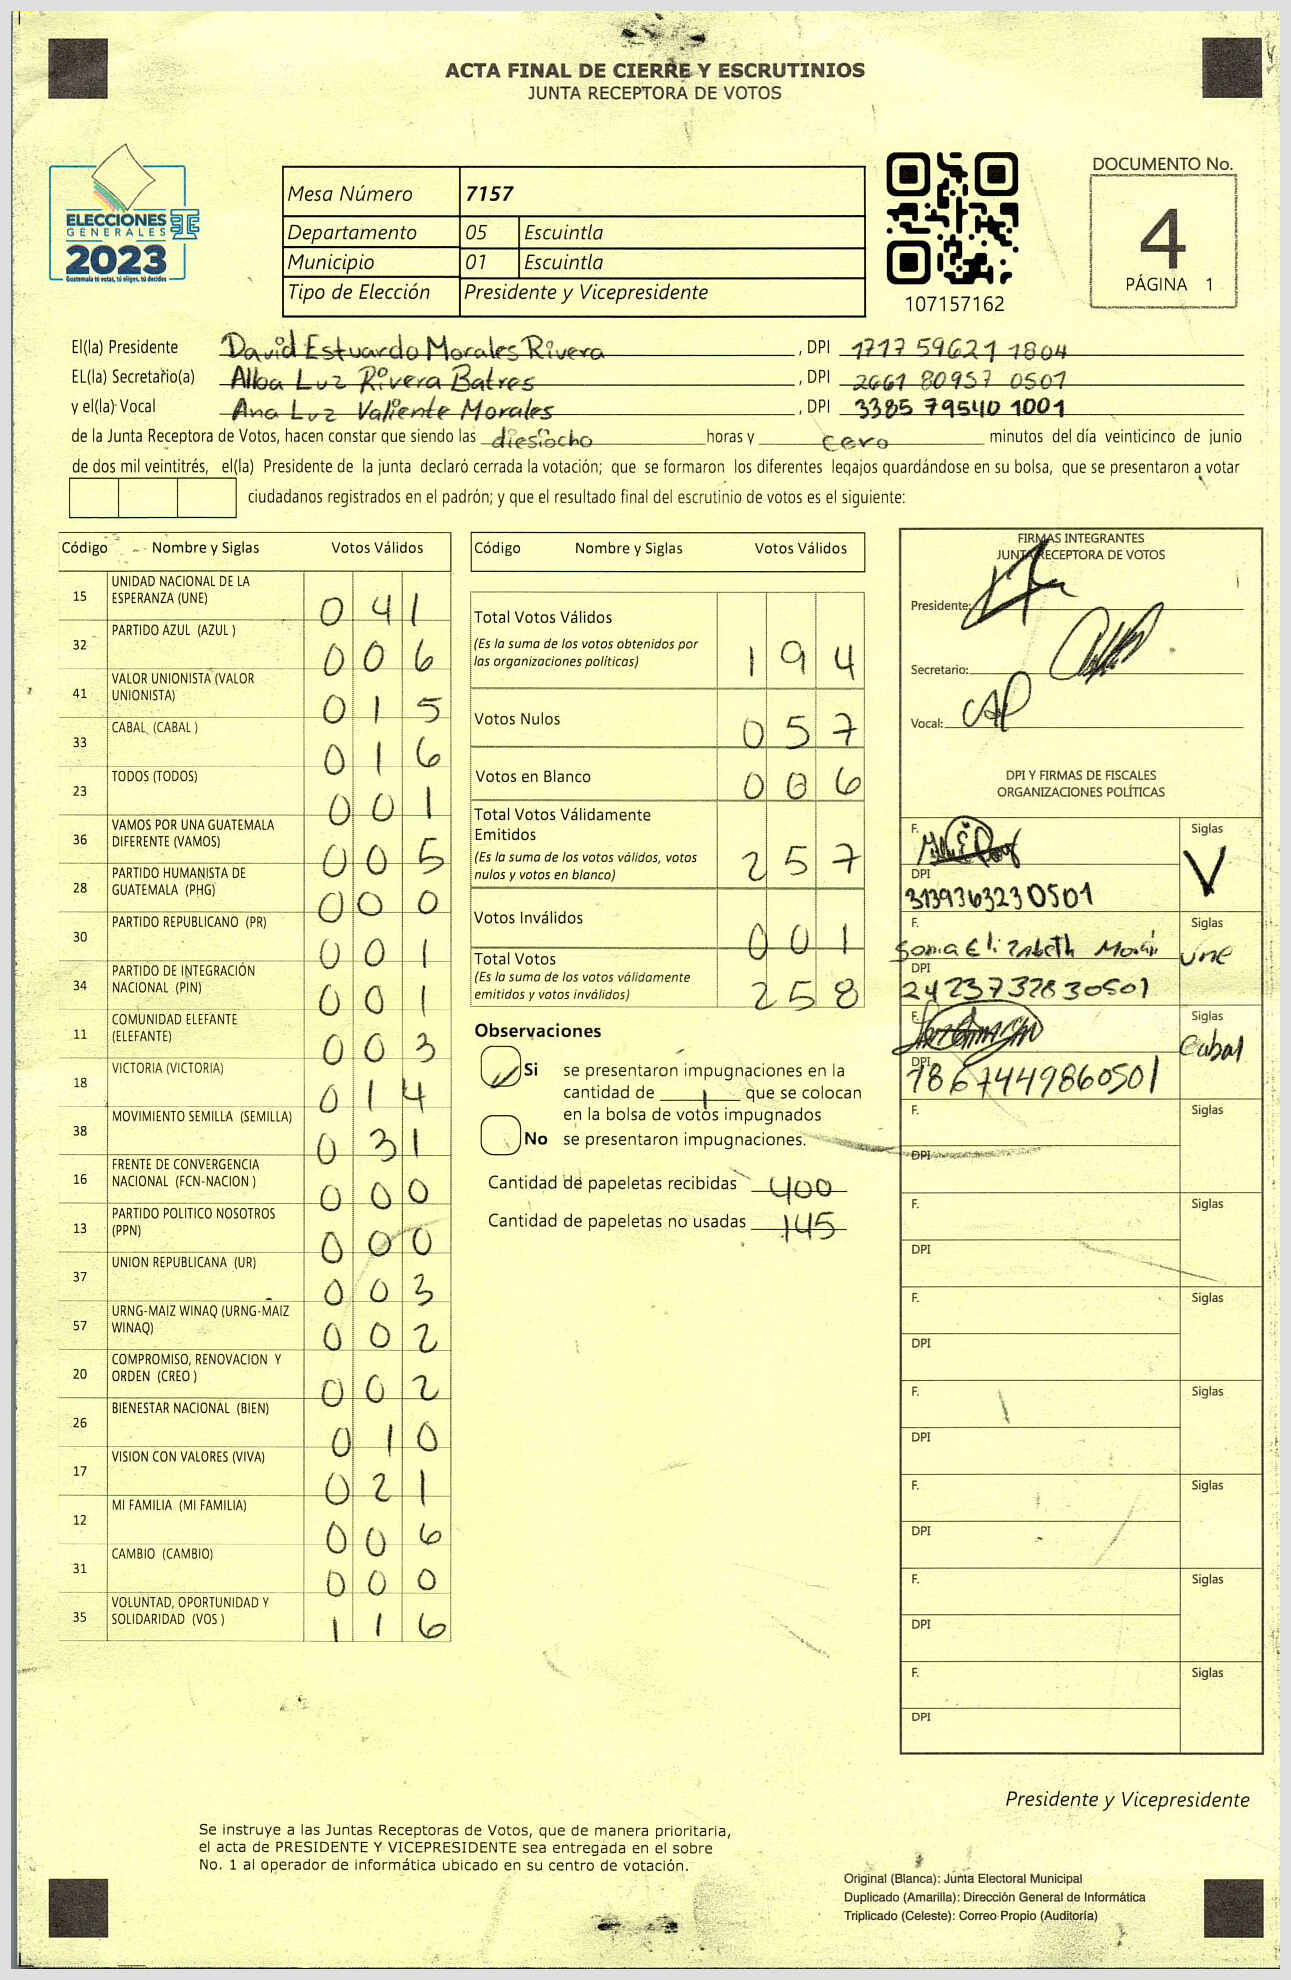 ACTA FINAL DE CIERRE Y ESCRUTINIOS
JUNTA RECEPTORA DE VOTOS
ELECCIONES
GENERALES
2023
Guatemala tú votas, tú eliges, tú decides
Mesa Número 7157
Departamento 05 Escuintla
Municipio 01 Escuintla
Tipo de Elección Presidente y Vicepresidente
107157162
DOCUMENTO No.
4
PÁGINA 1
El(la) Presidente David Estuardo Morales Rivera , DPI 1717 59621 1804
EL(la) Secretario(a) Alba Luz Rivera Batres , DPI 2661 80957 0501
y el(la) Vocal Ana Luz Valiente Morales , DPI 3385 79540 1001
de la Junta Receptora de Votos, hacen constar que siendo las diesiocho horas y cero minutos del día veinticinco de junio
de dos mil veintitrés, el(la) Presidente de la junta declaró cerrada la votación; que se formaron los diferentes legajos guardándose en su bolsa, que se presentaron a votar
ciudadanos registrados en el padrón; y que el resultado final del escrutinio de votos es el siguiente:
Código Nombre y Siglas Votos Válidos
15 UNIDAD NACIONAL DE LA
ESPERANZA (UNE) 041
32 PARTIDO AZUL (AZUL ) 006
41 VALOR UNIONISTA (VALOR
UNIONISTA) 015
33 CABAL (CABAL ) 016
23 TODOS (TODOS) 001
36 VAMOS POR UNA GUATEMALA
DIFERENTE (VAMOS) 005
28 PARTIDO HUMANISTA DE
GUATEMALA (PHG) 000
30 PARTIDO REPUBLICANO (PR) 001
34 PARTIDO DE INTEGRACIÓN
NACIONAL (PIN) 001
11 COMUNIDAD ELEFANTE
(ELEFANTE) 003
18 VICTORIA (VICTORIA) 014
38 MOVIMIENTO SEMILLA (SEMILLA) 031
16 FRENTE DE CONVERGENCIA
NACIONAL (FCN-NACION ) 000
13 PARTIDO POLITICO NOSOTROS
(PPN) 000
37 UNION REPUBLICANA (UR) 003
57 URNG-MAIZ WINAQ (URNG-MAIZ
WINAQ) 002
20 COMPROMISO, RENOVACION Y
ORDEN (CREO ) 002
26 BIENESTAR NACIONAL (BIEN) 010
17 VISION CON VALORES (VIVA) 021
12 MI FAMILIA (MI FAMILIA) 006
31 CAMBIO (CAMBIO) 000
35 VOLUNTAD, OPORTUNIDAD Y
SOLIDARIDAD (VOS ) 116
Código Nombre y Siglas Votos Válidos
Total Votos Válidos
(Es la suma de los votos obtenidos por
las organizaciones políticas) 194
Votos Nulos 057
Votos en Blanco 006
Total Votos Válidamente
Emitidos
(Es la suma de los votos válidos, votos
nulos y votos en blanco) 257
Votos Inválidos 001
Total Votos
(Es la suma de los votos válidamente
emitidos y votos inválidos) 258
Observaciones
Si se presentaron impugnaciones en la
cantidad de 1 que se colocan
en la bolsa de votos impugnados
No se presentaron impugnaciones.
Cantidad de papeletas recibidas 400
Cantidad de papeletas no usadas 145
FIRMAS INTEGRANTES
JUNTA RECEPTORA DE VOTOS
Presidente:
Secretario:
Vocal:
DPI Y FIRMAS DE FISCALES
ORGANIZACIONES POLÍTICAS
F. Siglas
V
DPI
3139363230501
F. Siglas
Sonia Elizabeth Morán une
DPI
2423732830501
F. Siglas
Cabal
DPI
1867449860501
F. Siglas
DPI
F. Siglas
DPI
F. Siglas
DPI
F. Siglas
DPI
F. Siglas
DPI
F. Siglas
DPI
F. Siglas
DPI
Presidente y Vicepresidente
Se instruye a las Juntas Receptoras de Votos, que de manera prioritaria,
el acta de PRESIDENTE Y VICEPRESIDENTE sea entregada en el sobre
No. 1 al operador de informática ubicado en su centro de votación.
Original (Blanca): Junta Electoral Municipal
Duplicado (Amarilla): Dirección General de Informática
Triplicado (Celeste): Correo Propio (Auditoría)